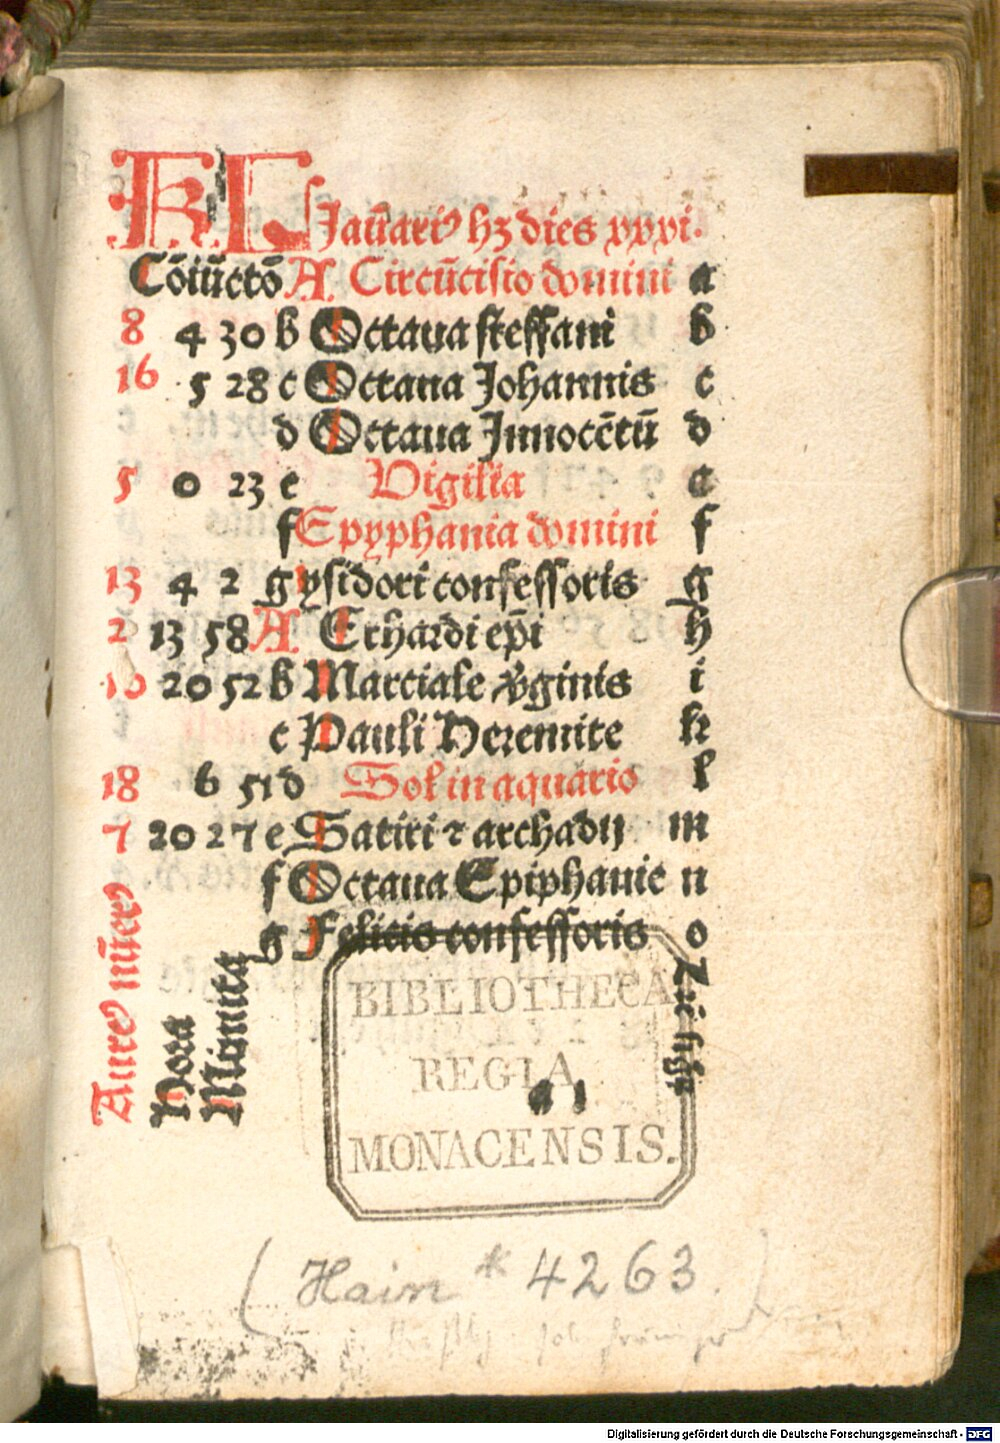 KL Januariꝰ hȝ dies xxxi.
Cōiūctō A Circūcisio domini a
8 4 30 b Octaua steffani b
16 5 28 c Octaua Johannis c
d Octaua Innocētū d
5 0 23 e Vigilia e
f Epyphania domini f
13 4 2 g ysidori confessoris g
2 13 58 A Erhardi ep̄i h
10 20 52 b Marciale v̄ginis i
c Pauli Heremite k
18 6 51 d Sol in aquario l
7 20 27 e Satiri ⁊ archadij m
f Octaua Epiphanie n
g Felicis confessoris o
Aureꝰ nūerꝰ
Hora
Minuta
BIBLIOTHECA
REGIA
MONACENSIS.
a 1
(Hain * 4263.)
Digitalisierung gefördert durch die Deutsche Forschungsgemeinschaft - DFG